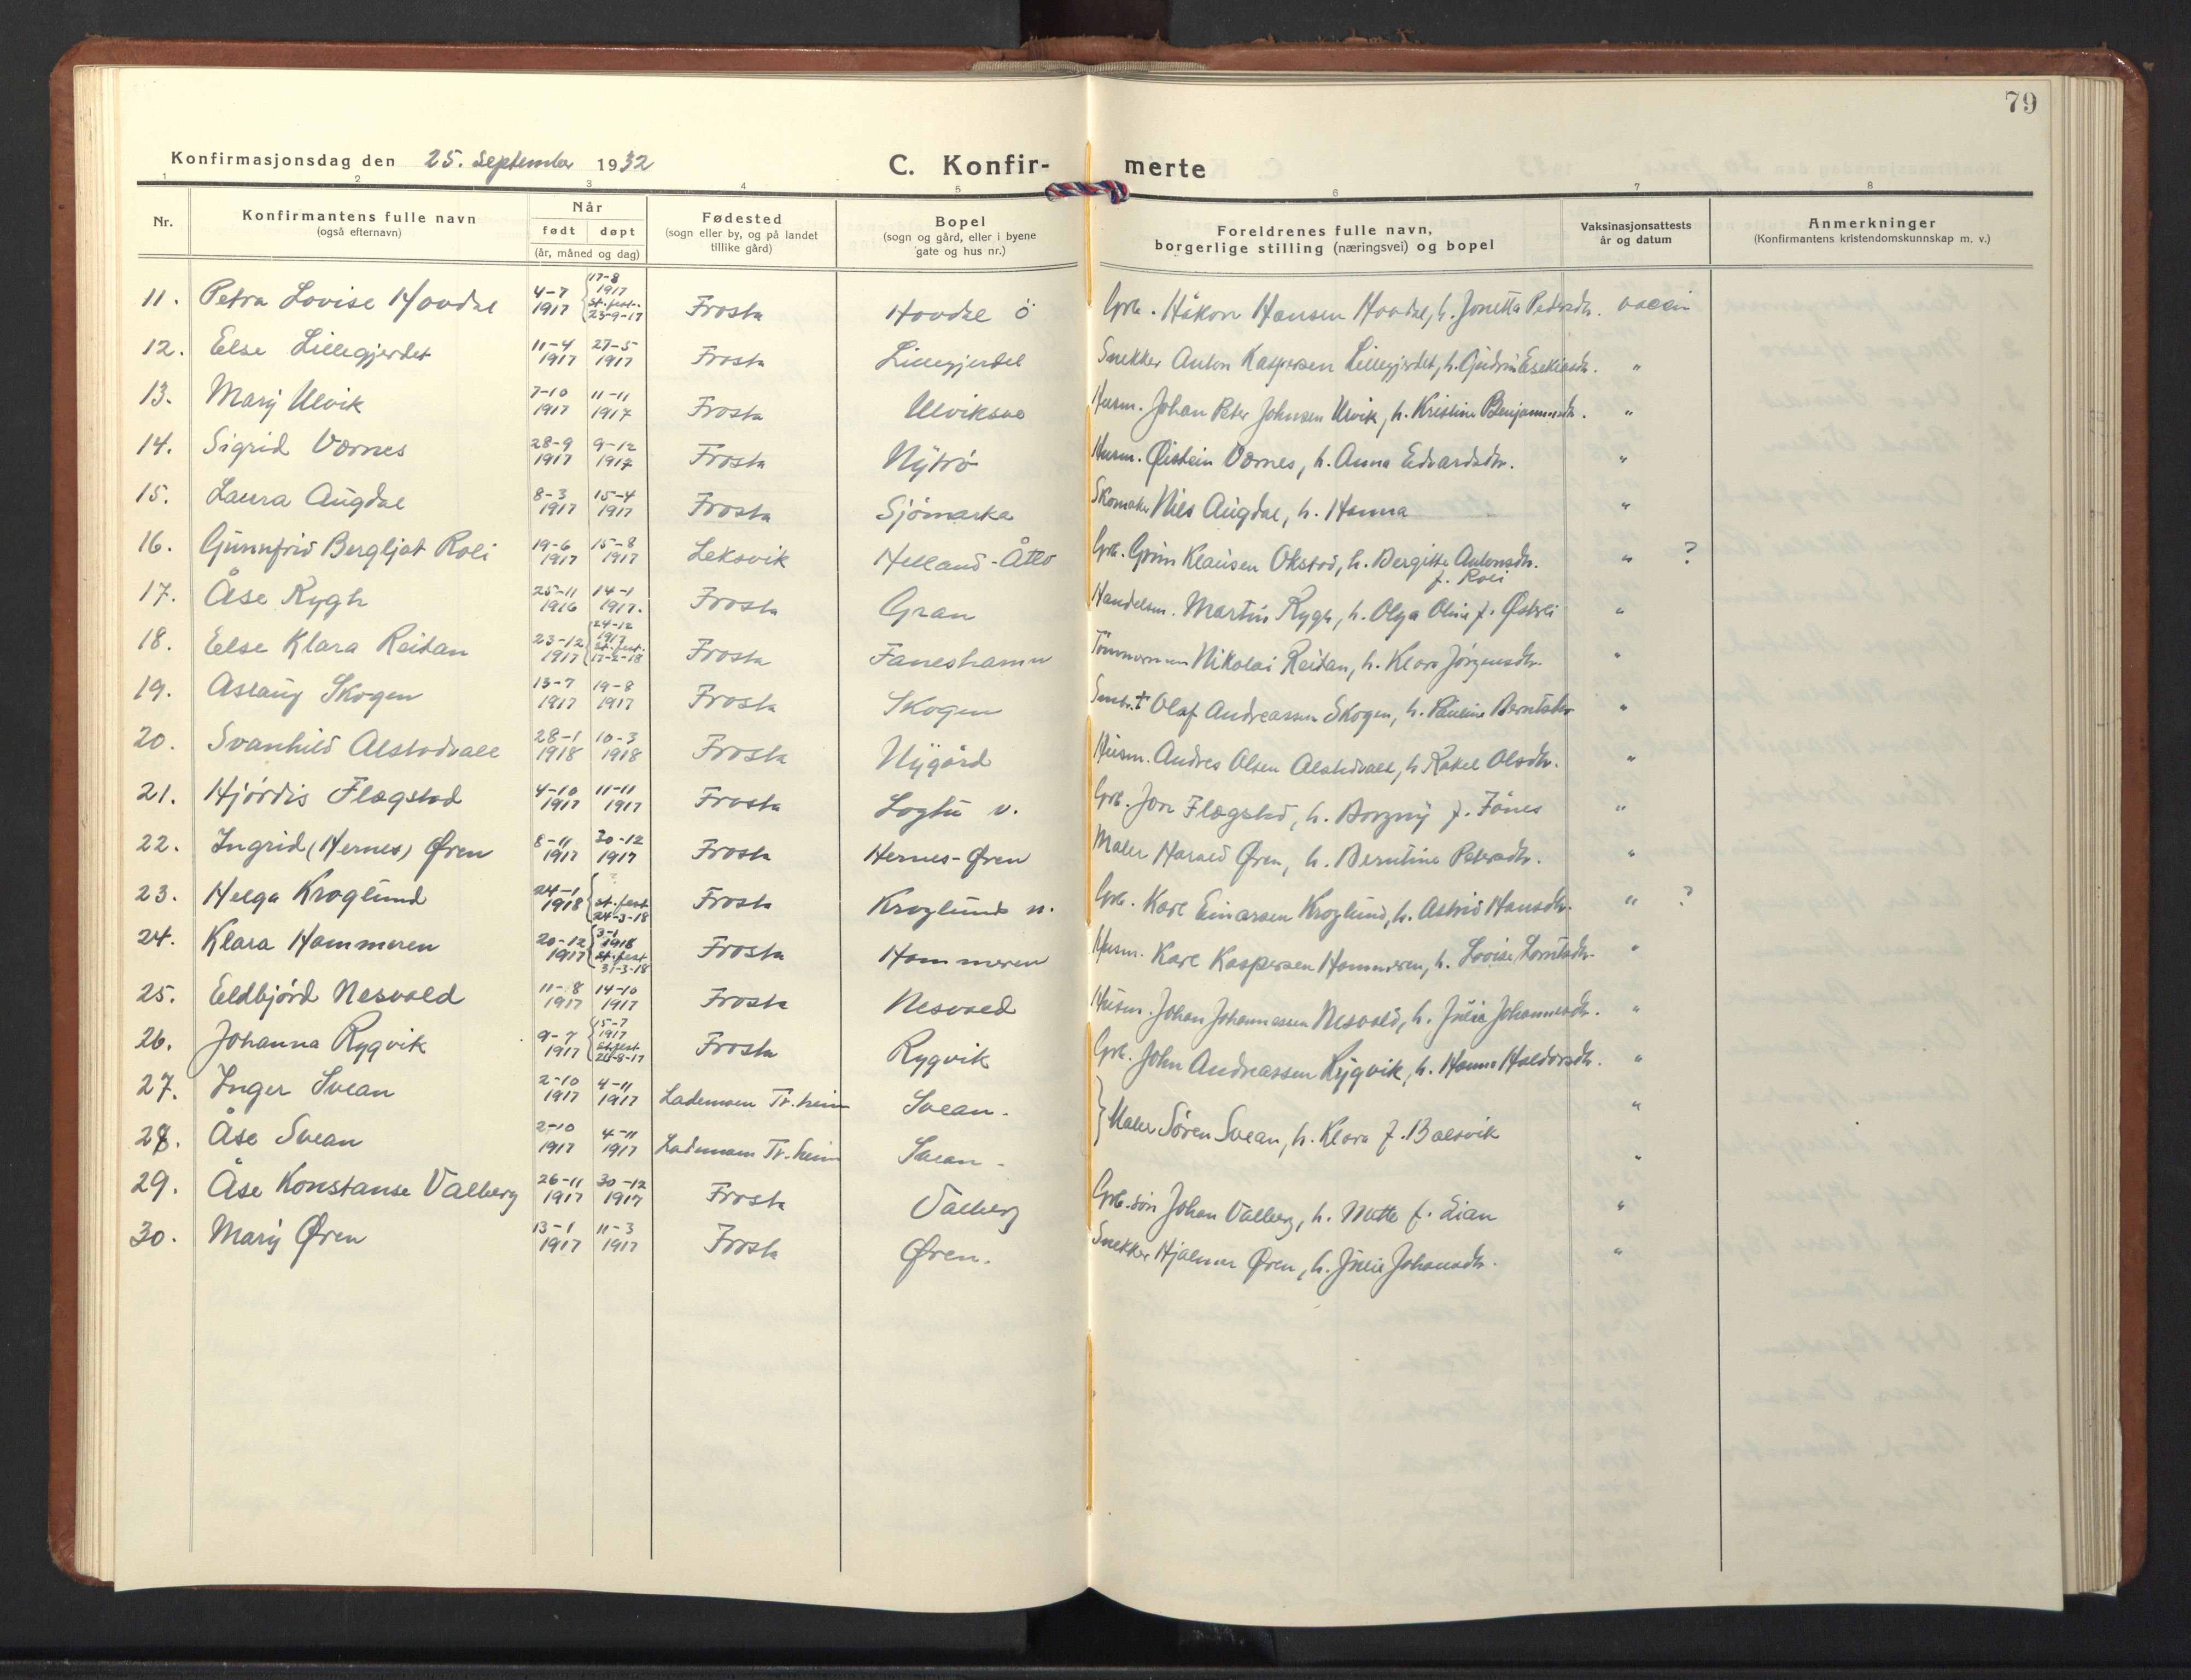 79
Konfirmasjonsdag den 25. september 1932
C. Konfir- merte
1 2 3 4 5 6 7 8
Nr.
Konfirmantens fulle navn
(også efternavn)
Når
født døpt
(år, måned og dag)
Fødested
(sogn eller by, og på landet
tillike gård)
Bopel
(sogn og gård, eller i byene
gate og hus nr.)
Foreldrenes fulle navn,
borgerlige stilling (næringsvei) og bopel
Vaksinasjonsattests
år og datum
Anmerkninger
(Konfirmantens kristendomskunnskap m. v.)
11. Petra Lovise Hovdal 4-7 1917 17-8 1917 st. fest. 23-9-17 Frosta Hovdal ö Grb. Håkon Hansen Hovdal, h. Jonetta Pedersdtr. vaccin
12. Else Lillegjerdet 11-4 1917 27-5 1917 Frosta Lillegjerdet Snekker Anton Kaspersen Lillegjerdet, h. Gudrun Esekiasdtr. "
13. Mary Ulvik 7-10 1917 11-11 1917 Frosta Ulviksvo Husm. Johan Peter Johnsen Ulvik, h. Kristine Benjaminsdtr. "
14. Sigrid Værnes 28-9 1917 9-12 1917 Frosta Nytrö Husm. Øistein Værnes, h. Anna Edvardsdtr. "
15. Laura Augdal 8-3 1917 15-4 1917 Frosta Sjömarka Skomaker Nils Augdal, h. Hanna "
16. Gunnfrid Bergljot Roli 19-6 1917 15-8 1917 Leksvik Helland-Åtlo Grb. Grim Klausen Okstad, h. Bergitte Antonsdtr. f. Roli " ?
17. Åse Rygh 25-11 1916 14-1 1917. Frosta Gran Handelsm. Martin Rygh, h. Olga Oline f. Østvli "
18. Else Klara Reitan 23-12 1917 24-12 1917 st. fest. 17-2-18 Frosta Faneshamn Tömmermann Nikolai Reitan, h. Klara Jörgensdtr. "
19. Aslaug Skogen 13-7 1917 19-8 1917 Frosta Skogen Smbr. + Olaf Andreassen Skogen, h. Pauline Berntsdtr. "
20. Svanhild Alstadvald 28-1 1918 10-3 1918 Frosta Nygård Husm. Andres Olsen Alstadvald, h. Rakel Olsdtr. "
21. Hjördis Flægstad 4-10 1917 11-11 1917 Frosta Logtu v. Grb. Jon Flægstad, h. Borgny f. Fånes "
22. Ingrid (Hernes) Øren 8-11 1917 30-12 1917 Frosta Hernes-Øren Maler Harald Øren, h. Berntine Petersdtr. "
23. Helga Kroglund 24-1 1918 st. fest 24-3-18 Frosta Kroglund n. Grb. Karl Einarsen Kroglund, h. Astrid Hansdtr. " ?
24. Klara Hammeren 20-12 1917 3-1 1918 st. fest 31-3-18 Frosta Hammeren Husm. Karl Kaspersen Hammeren, h. Lovise Lorntsdtr. "
25. Eldbjörd Nesvold 11-8 1917 14-10 1917 Frosta Nesvold Husm. Johan Johannessen Nesvold, h. Julie Johannesdtr. "
26. Johanna Rygvik 9-7 1917 15-7 1917 st. fest 26-8-17 Frosta Rygvik Grb. John Andreassen Rygvik, h. Hanna Haldorsdtr. "
27. Inger Svean 2-10 1917 4-11 1917 Lademoen Tr. heim Svean. "
28. Åse Svean 2-10 1917 4-11 1917 Lademoen Tr. heim Svean - } Maler Sören Svean, h. Klara f. Balsvik "
29. Åse Konstanse Valberg 26-11 1917 30-12 1917 Frosta Valberg Grb. sön Johan Valberg, h. Mette f. Lian "
30. Mary Øren 13-1 1917 11-3 1917 Frosta Øren. Snekker Hjalmar Øren, h. Julie Johansdtr. "